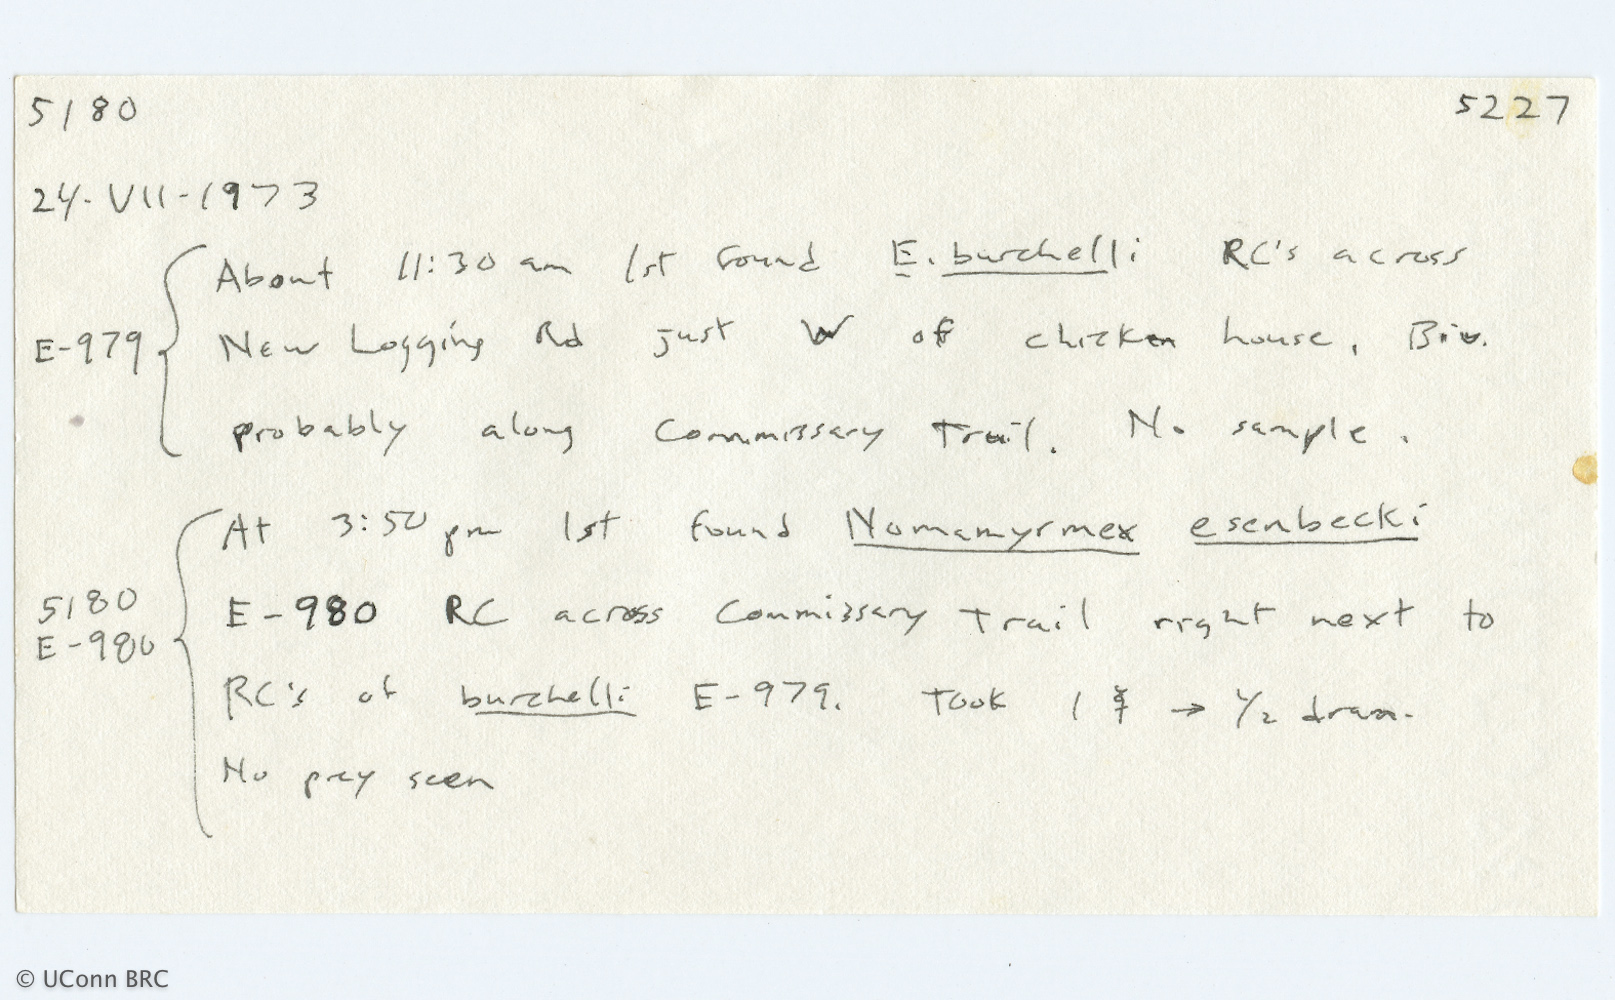 5180 5227
24-VII-1973
About 11:30 am 1st found E. burchelli RC's across
E-979 New Logging Rd just W of chicken house. Biv.
probably along Commissary Trail. No sample.
At 3:50 pm 1st found Nomamyrmex esenbecki
5180 E-980 RC across Commissary Trail right next to
E-980
RC's of burchelli E-979. Took 1 → 1/2 dram.
No prey seen
© UConn BRC